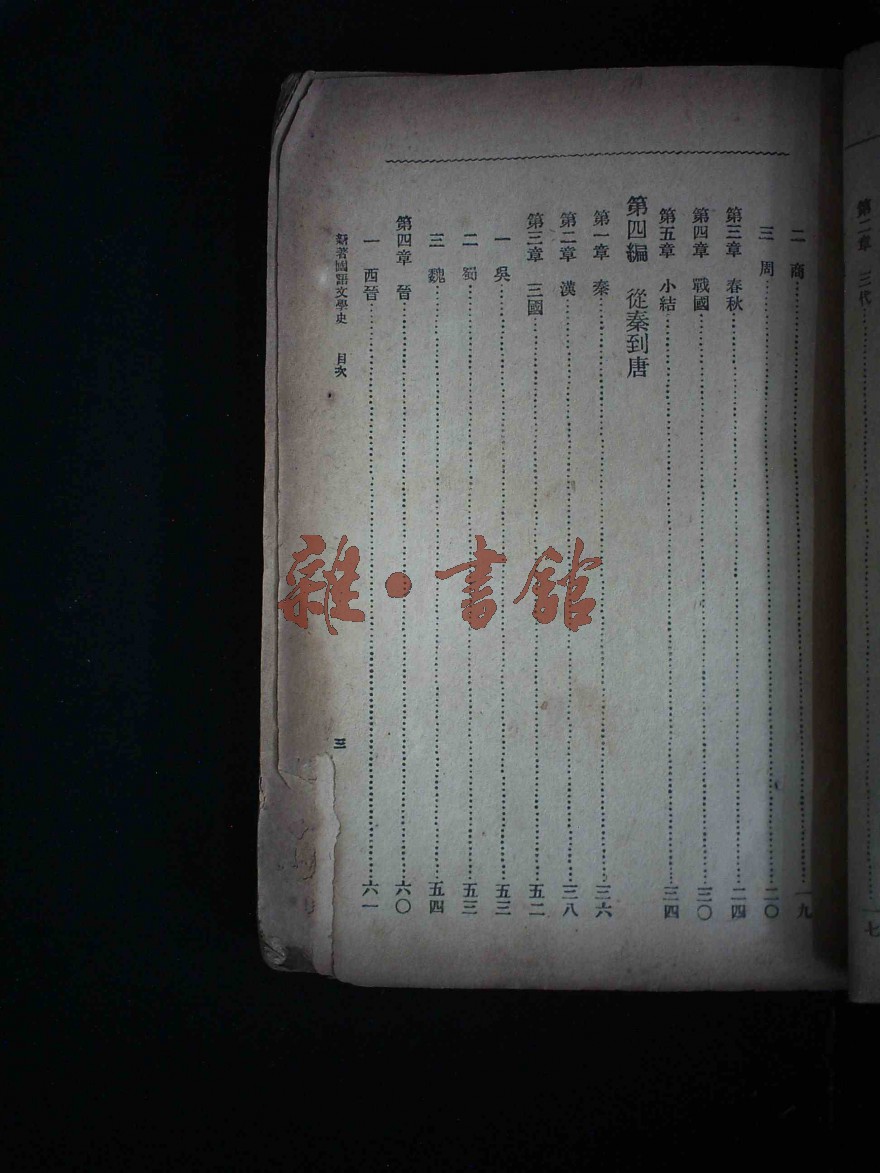 第二章　三代……七
二　商……一九
三　周……二〇
第三章　春秋……二四
第四章　戰國……三〇
第五章　小結……三四
第四編　從秦到唐
第一章　秦……三六
第二章　漢……三八
第三章　三國……五二
一　吳……五三
二　蜀……五三
三　魏……五四
第四章　晉……六〇
一　西晉……六一
新著國語文學史　目次　三
雜·書館